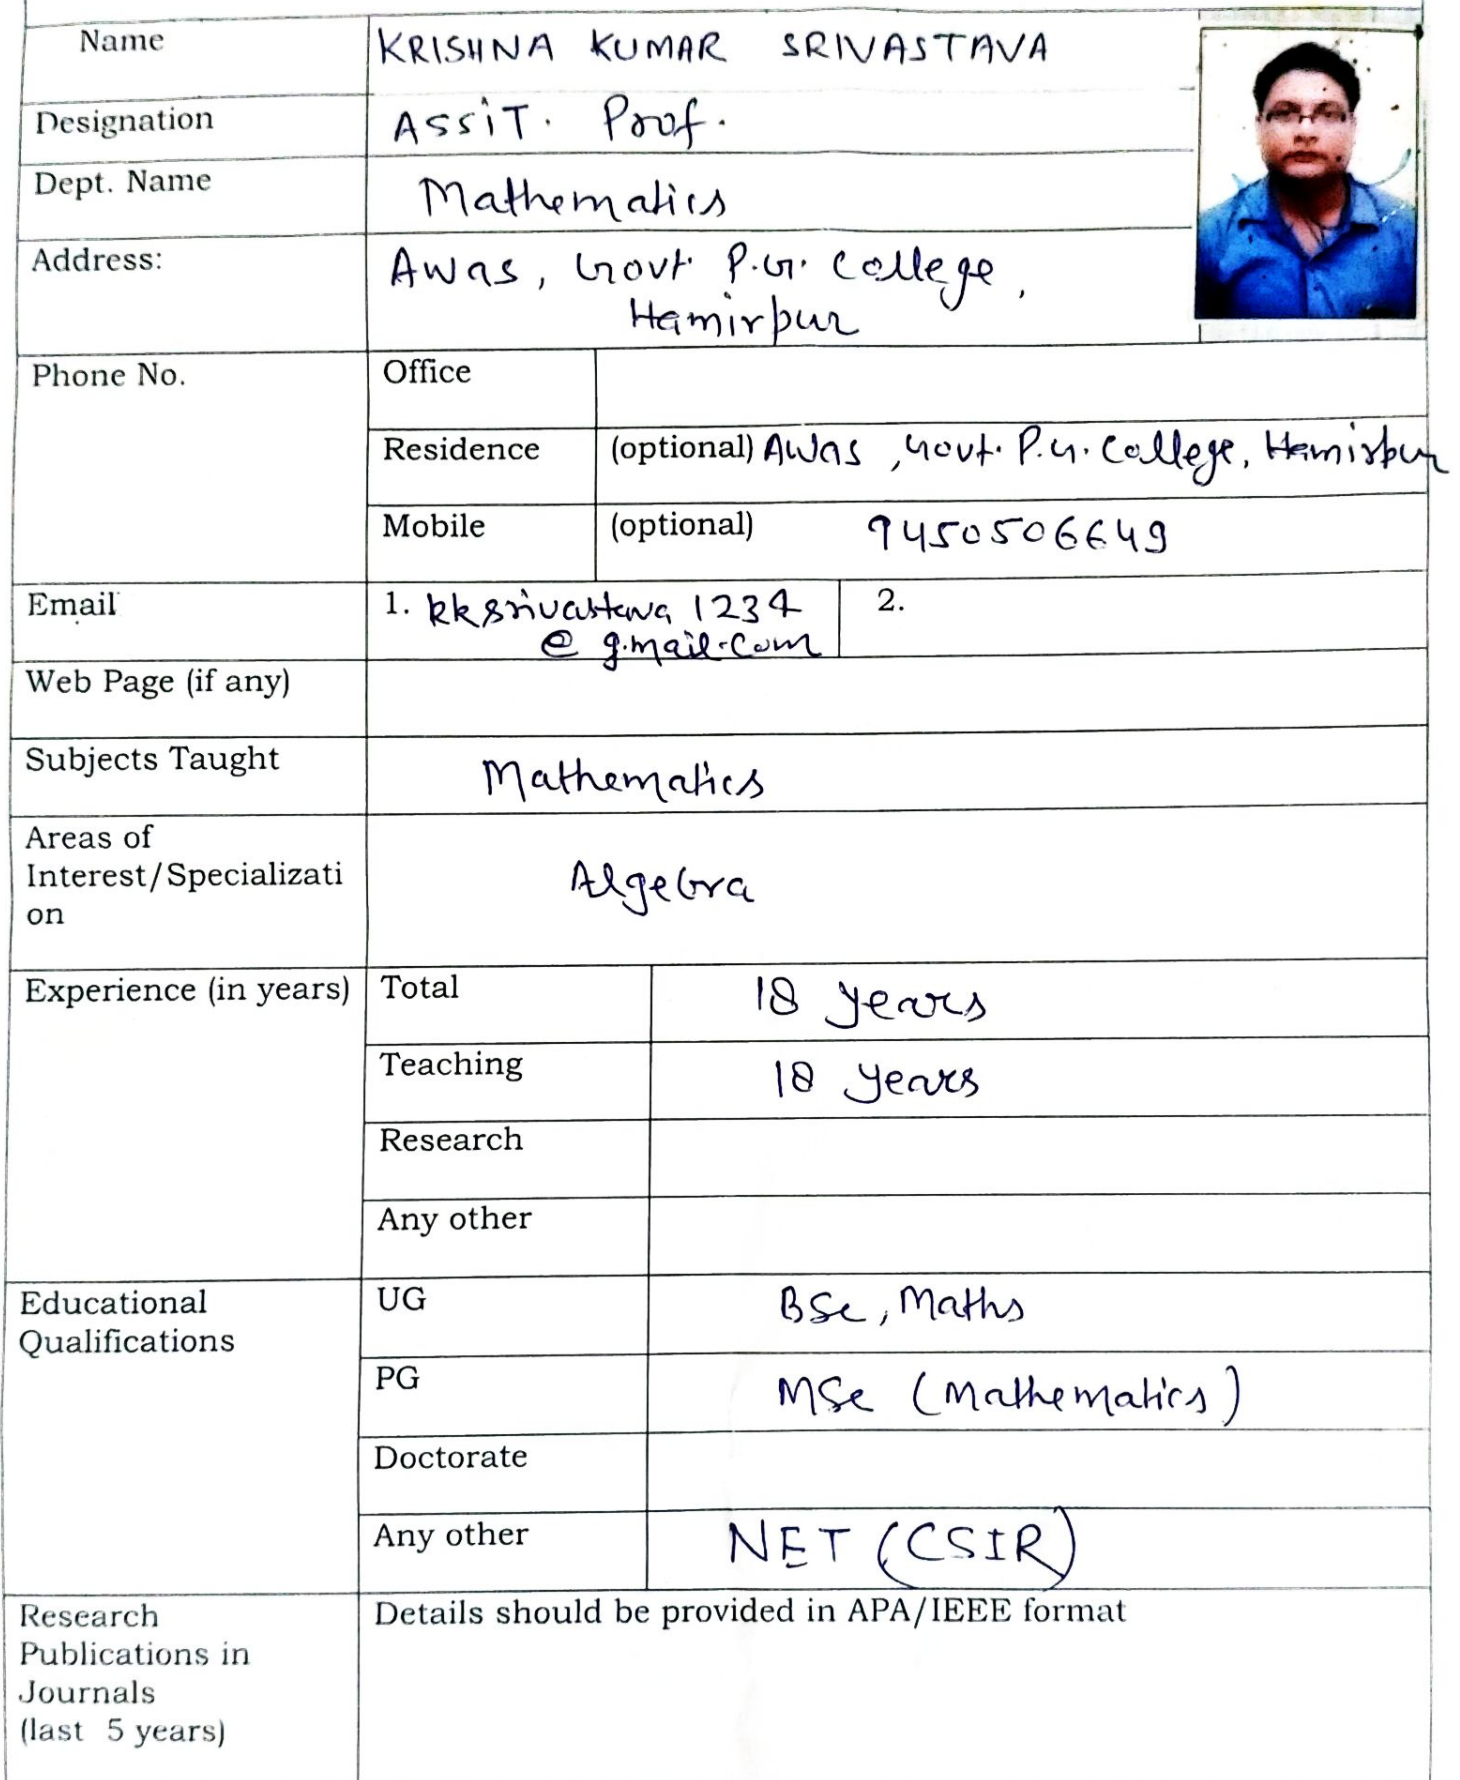 Name KRISHNA KUMAR SRIVASTAVA
Designation ASSiT. Prof.
Dept. Name Mathematics
Address: Awas, Govt. P.G. College,
Hamirpur
Phone No. Office
Residence (optional) Awas, Govt. P.G. College, Hamirpur
Mobile (optional) 9450506649
Email 1. kksrivastava1234 2.
@ g.mail.com
Web Page (if any)
Subjects Taught Mathematics
Areas of
Interest/Specializati Algebra
on
Experience (in years) Total 18 years
Teaching 18 years
Research
Any other
Educational UG BSc, Maths
Qualifications
PG MSc (Mathematics)
Doctorate
Any other NET (CSIR)
Research Details should be provided in APA/IEEE format
Publications in
Journals
(last 5 years)